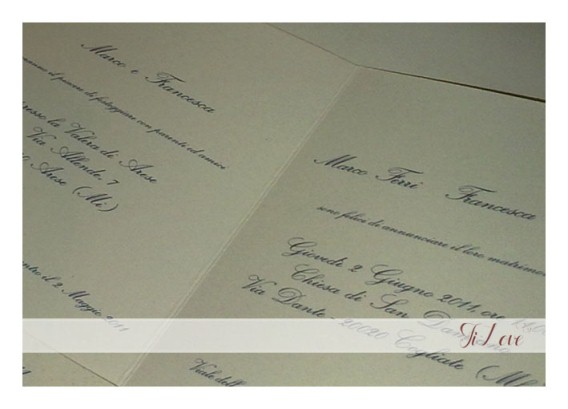 Marco e Francesca
il piacere di festeggiare con parenti ed amici
presso la Valera di Arese
Via Allende, 7
Arese (Mi)
entro il 2 Maggio 2011
Marco Ferri Francesca
sono felici di annunciare il loro matrimonio
Giovedì 2 Giugno 2011, ore
Chiesa di San Damiano
Via Dante - 20020 Cogliate (MI)
Viale
JiLove